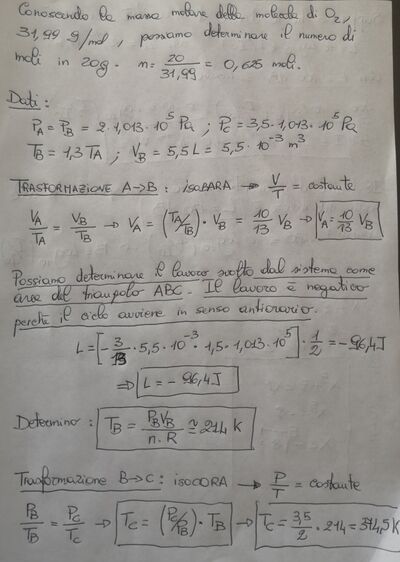 Conoscendo la massa molare della molecola di O₂,
31,99 g/mol, possiamo determinare il numero di
moli in 20g. n = 20/31,99 = 0,625 moli.
Dati:
P_A = P_B = 2·1,013·10⁵ Pa ; P_C = 3,5·1,013·10⁵ Pa
T_B = 1,3 T_A ; V_B = 5,5 L = 5,5·10⁻³ m³
TRASFORMAZIONE A→B: isoBARA → V/T = costante
V_A/T_A = V_B/T_B → V_A = (T_A/T_B)·V_B = 10/13 V_B → V_A = 10/13 V_B
Possiamo determinare il lavoro svolto dal sistema come
area del triangolo ABC. Il lavoro è negativo
perché il ciclo avviene in senso antiorario.
L = [-3/13·5,5·10⁻³·1,5·1,013·10⁵]·1/2 = -96,4 J
⇒ L = -96,4 J
Determino: T_B = P_B V_B/n·R ≃ 214 K
Trasformazione B→C: isoCORA → P/T = costante
P_B/T_B = P_C/T_C → T_C = (P_C/P_B)·T_B → T_C = 3,5/2·214 = 374,5 K